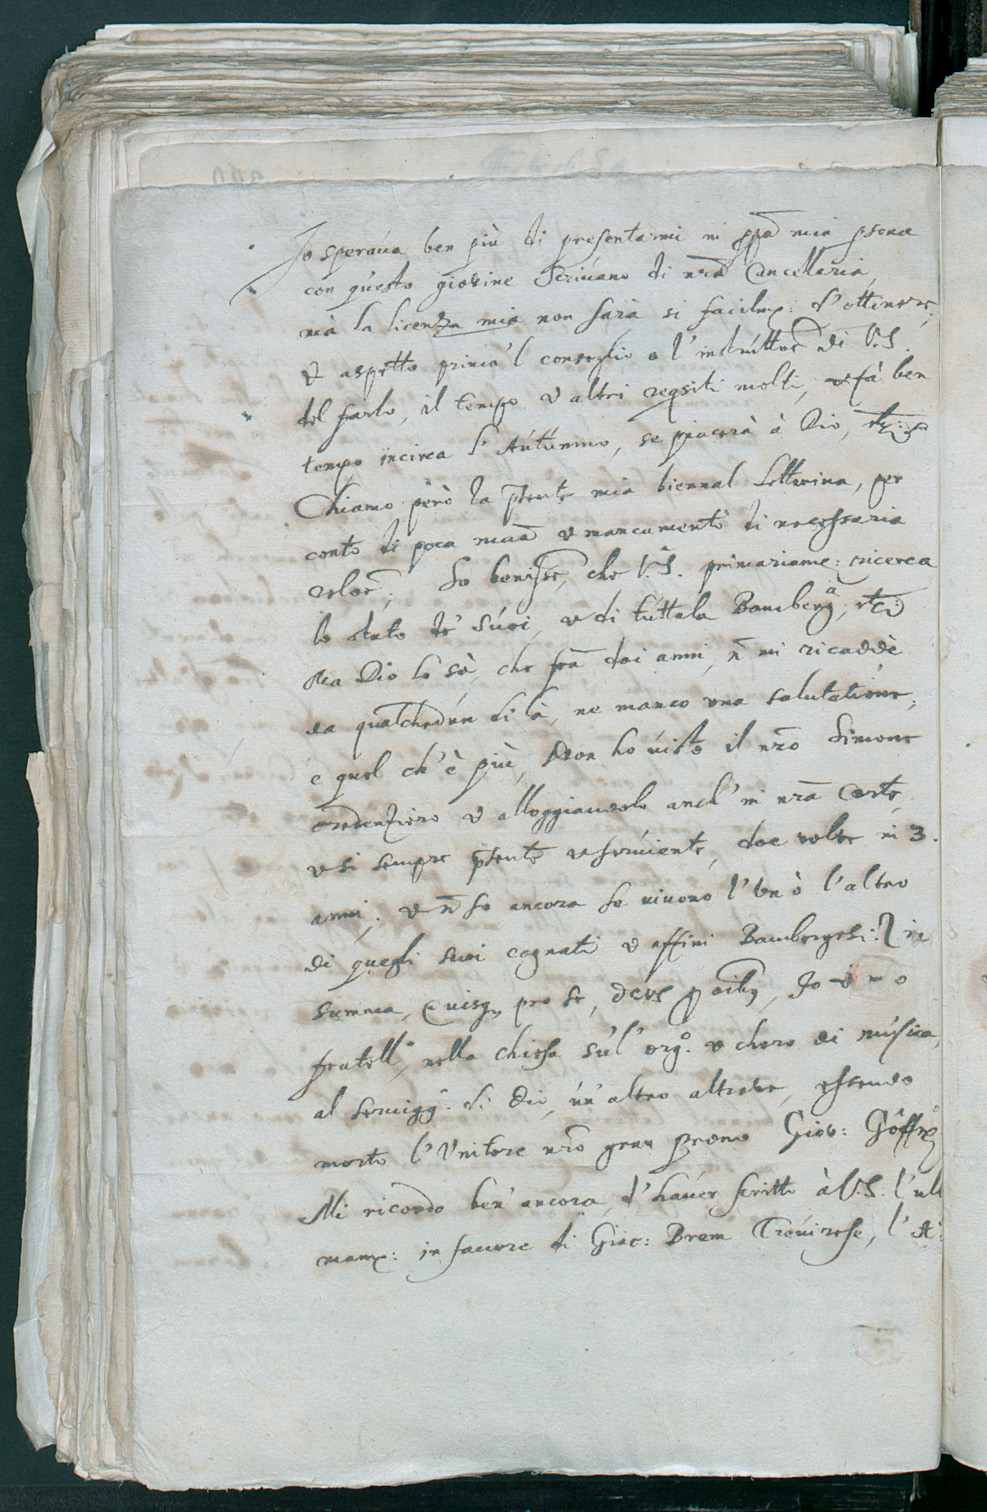 Io sperava ben più di presentarmi in ppã mia psona
con questo giovine Scrivano di nrã Cancellaria,
mà la licenza mia non sarà si facilmẽ: d'ottenere;
& aspetto prima'l conseglio o l'instruttoẽ di V.S.
del farlo, il tempo & altri reqsiti molti, & fà ben
tempo incirca l'Autunno, se piacerà à Dio,
Chiamo però la pñte mia biennal Letterina, per
conto di poca & mancamento di necessaria
So beniss̃e, che V.S. primariamẽ: ricerca
lo stato de' Suoi, & di tutta la Bamberga, etc̃
Ma Dio lo sà, che frà doi anni, ñ mi ricaddè
da qualchedun di là, ne manco una salutatione;
e quel ch'è più, Non ho visto il nrõ Simone
credenziero & alloggiandolo anch'in nrã Corte,
& si sempre pñte & serviente, doe volte in 3.
anni; & ñ so ancora se vivono l'un ò l'altro
di quegli suoi cognati & affini Bambergesi: in
summa, Cuisq, pro se, deus p oibq, Io & m o
fratello, nella chiesa sùl' orgo. & choro di mùsica,
al servigg.o di Dio, un' altro altrove, essendo
morto l'Unitore nrõ gran Giov:
Mi ricordo ben' ancora, d'haver scritto à V.S. l'ult
mamẽ: in favore di Giac: Brem Trevirese, l'A: